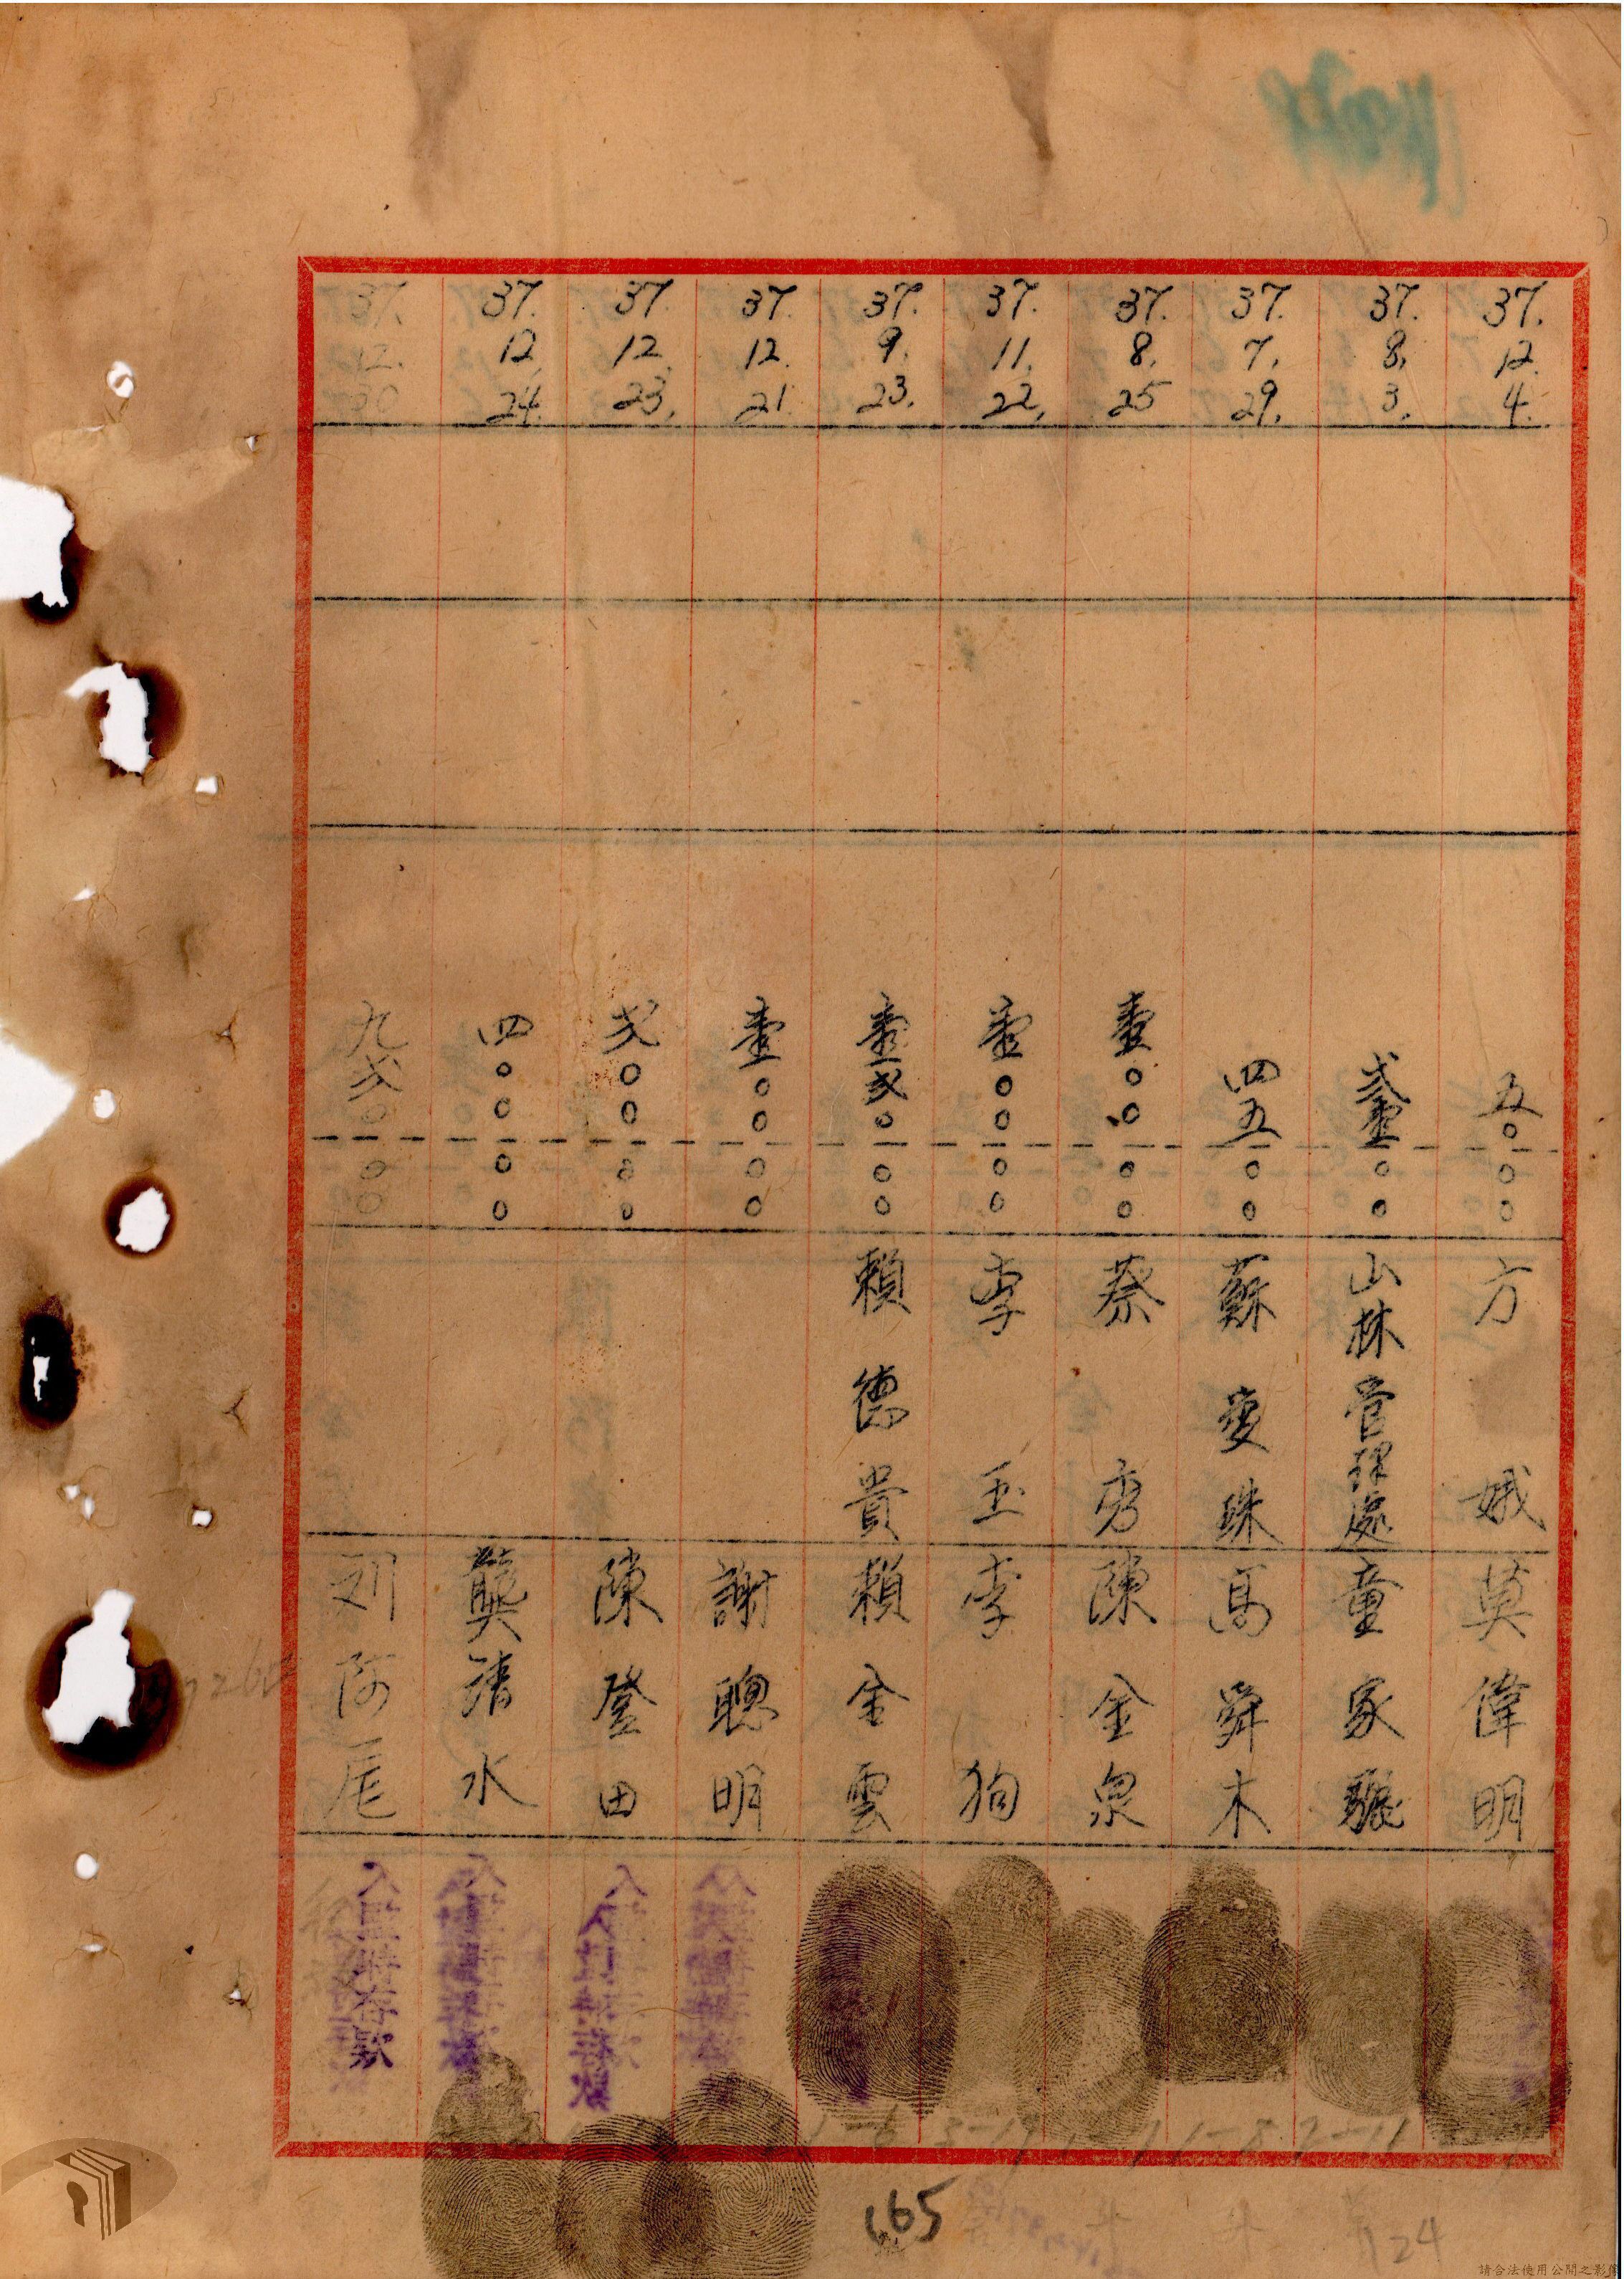 37. 12. 4. 五〇〇〇 方娥 莫偉明
37. 8. 3. 弍壹〇〇 山林管理處 童家驪
37. 7. 29. 四五〇〇 蘇愛珠 高舜木
37. 8. 25 壹〇〇〇〇 蔡秀 陳金泉
37. 11. 22. 壹〇〇〇〇 李玉 李狗
37. 9. 23. 壹弍〇〇〇 賴德貴 賴金雲
37. 12. 21. 壹〇〇〇〇 謝聰明
37. 12. 23. 弍〇〇〇〇 陳登田
37. 12. 24. 四〇〇〇〇 龔清水
37. 12. 30 九弍〇〇〇 刘阿尾 存款
165
124
請合法使用公開之影像